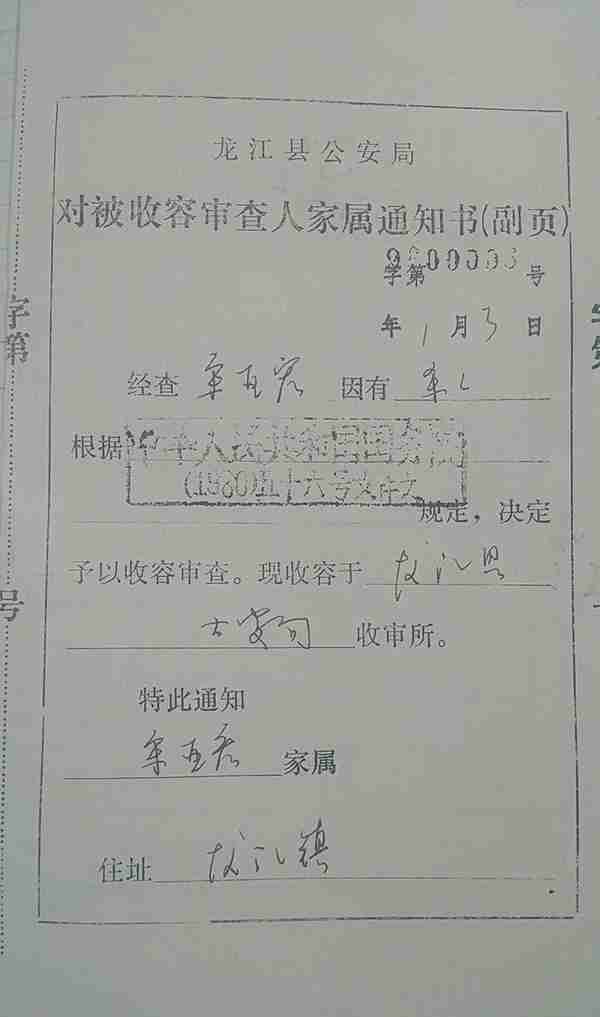 龙江县公安局
对被收容审查人家属通知书(副页)
字第 号
年1月3日
经查 因有
根据中华人民共和国国务院
(1980)五十六号文件
规定，决定
予以收容审查。现收容于龙江县
公安局收审所。
特此通知
家属
住址 龙江镇
字第
号